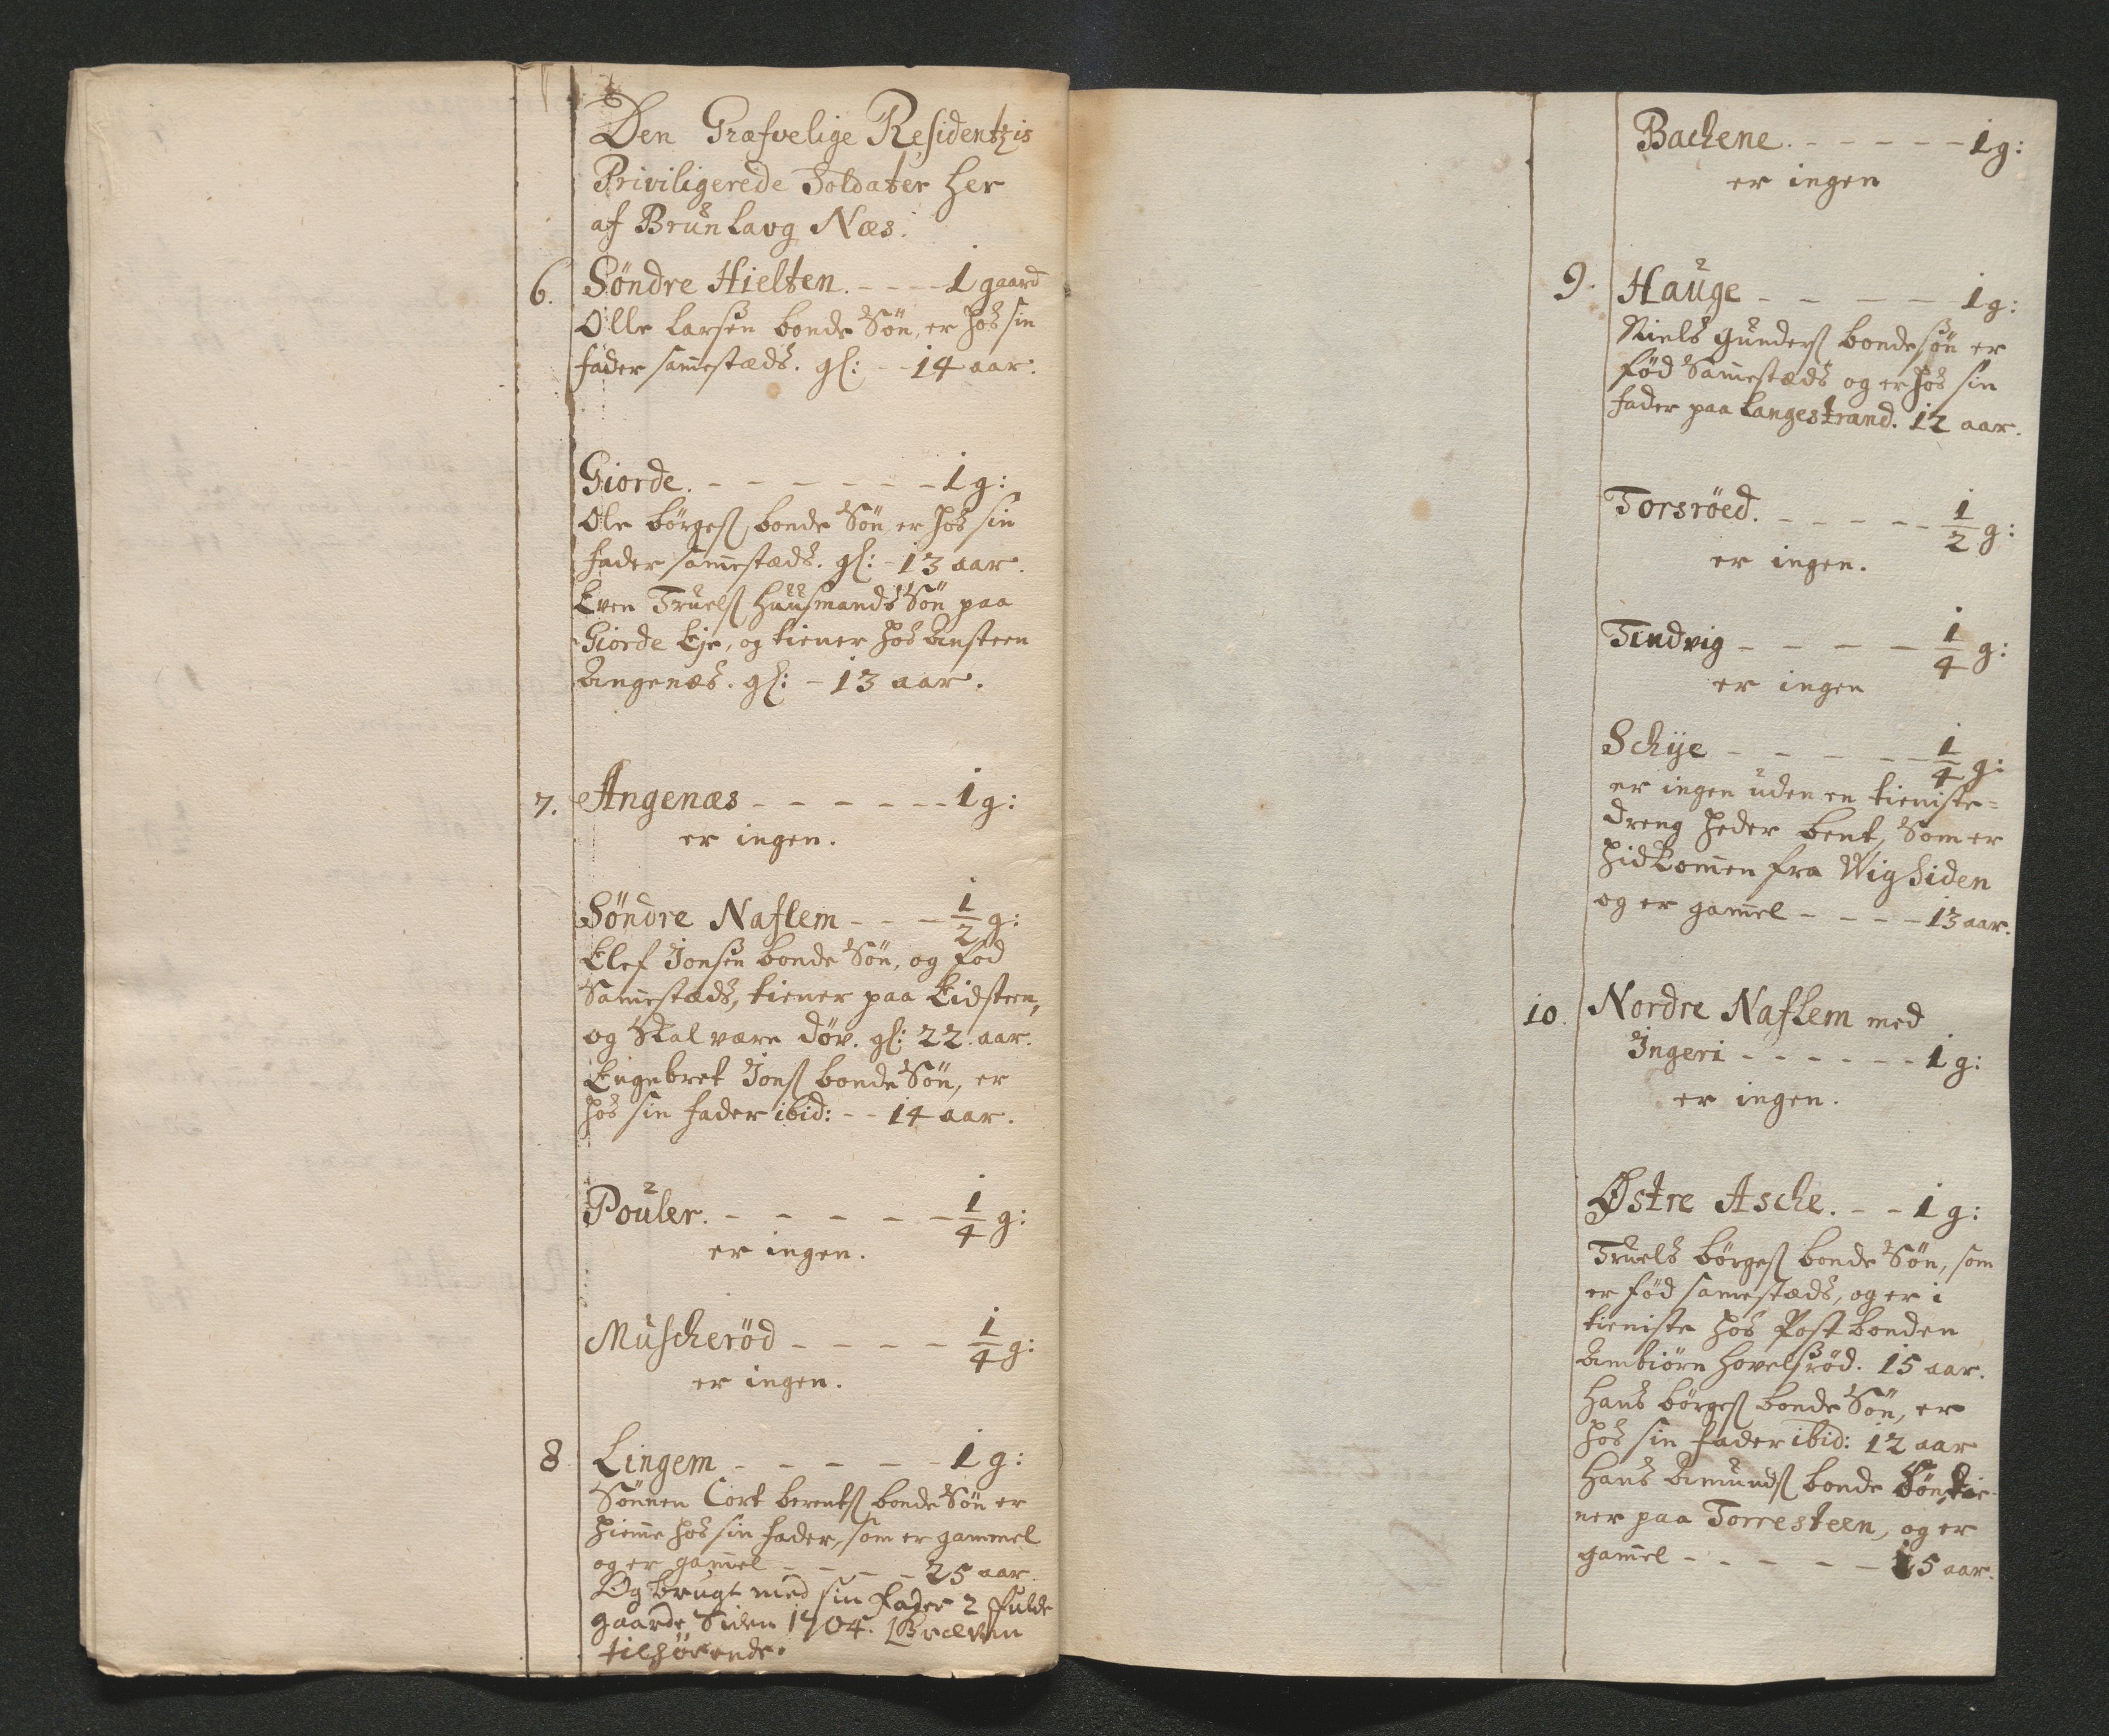 Den Græfvelige Residentzis
Priviligerede Soldater her
af Brunlavg Næs.
6. Söndre Hielten. - - - - 1 gaard
Olle Larsen bonde Sön, er hos sin
fader samestæds. gl: - - 14 aar.
Giorde. - - - - - - - 1 g:
Ole börges, bonde Sön er hos sin
fader samestæds. gl: - 13 aar.
Even Truels huusmands Sön paa
Giorde Eje, og tiener hos Ansteen
Angenæs. gl: - 13 aar.
7. Angenæs - - - - - - 1 g:
er ingen.
Söndre Naflem - - - 1/2 g:
Elef Jonsen bonde Sön, og föd
Samestæds, tiener paa Eidsteen,
og Skal være döv. gl: 22 aar.
Engebret Jons bonde Sön, er
hos sin fader ibid: - - 14 aar.
Pouler. - - - - - 1/4 g:
er ingen.
Muscheröd - - - - 1/4 g:
er ingen.
8 Lingem - - - - - 1 g:
Sönnen Cort berents bonde Sön er
hieme hos sin fader, som er gammel
og er gamel - - - - 25 aar.
Og brugt med sin Fader 2 fulde
gaarde Siden 1704. Græven
tilhörende.
Bachene. - - - - - 1 g:
er ingen
9. Hauge - - - - 1 g:
Niels Gunders bonde sön er
föd Samestæds og er hos sin
fader paa Langestrand. 12 aar.
Torsröed. - - - - - 1/2 g:
er ingen.
Tindvig - - - - 1/4 g:
er ingen
Schije - - - - - 1/4 g:
er ingen uden en tieniste=
dreng Peder bent, Som er
hidkomen fra Wigsiden
og er gamel - - - - 13 aar.
10. Nordre Naflem med
Ingeri - - - - - - 1 g:
er ingen.
Østre Asche. - - 1 g:
Truels börges bonde Sön, som
er föd samestæds, og er i
tieniste hos Post bonden
Ambiörn Hovelsröd. 15 aar.
Hans börges bonde Sön, er
hos sin fader ibid: 12 aar
Hans Amunds bonde Sön, tie-
ner paa Torresteen, og er
gamel - - - - - 15 aar.